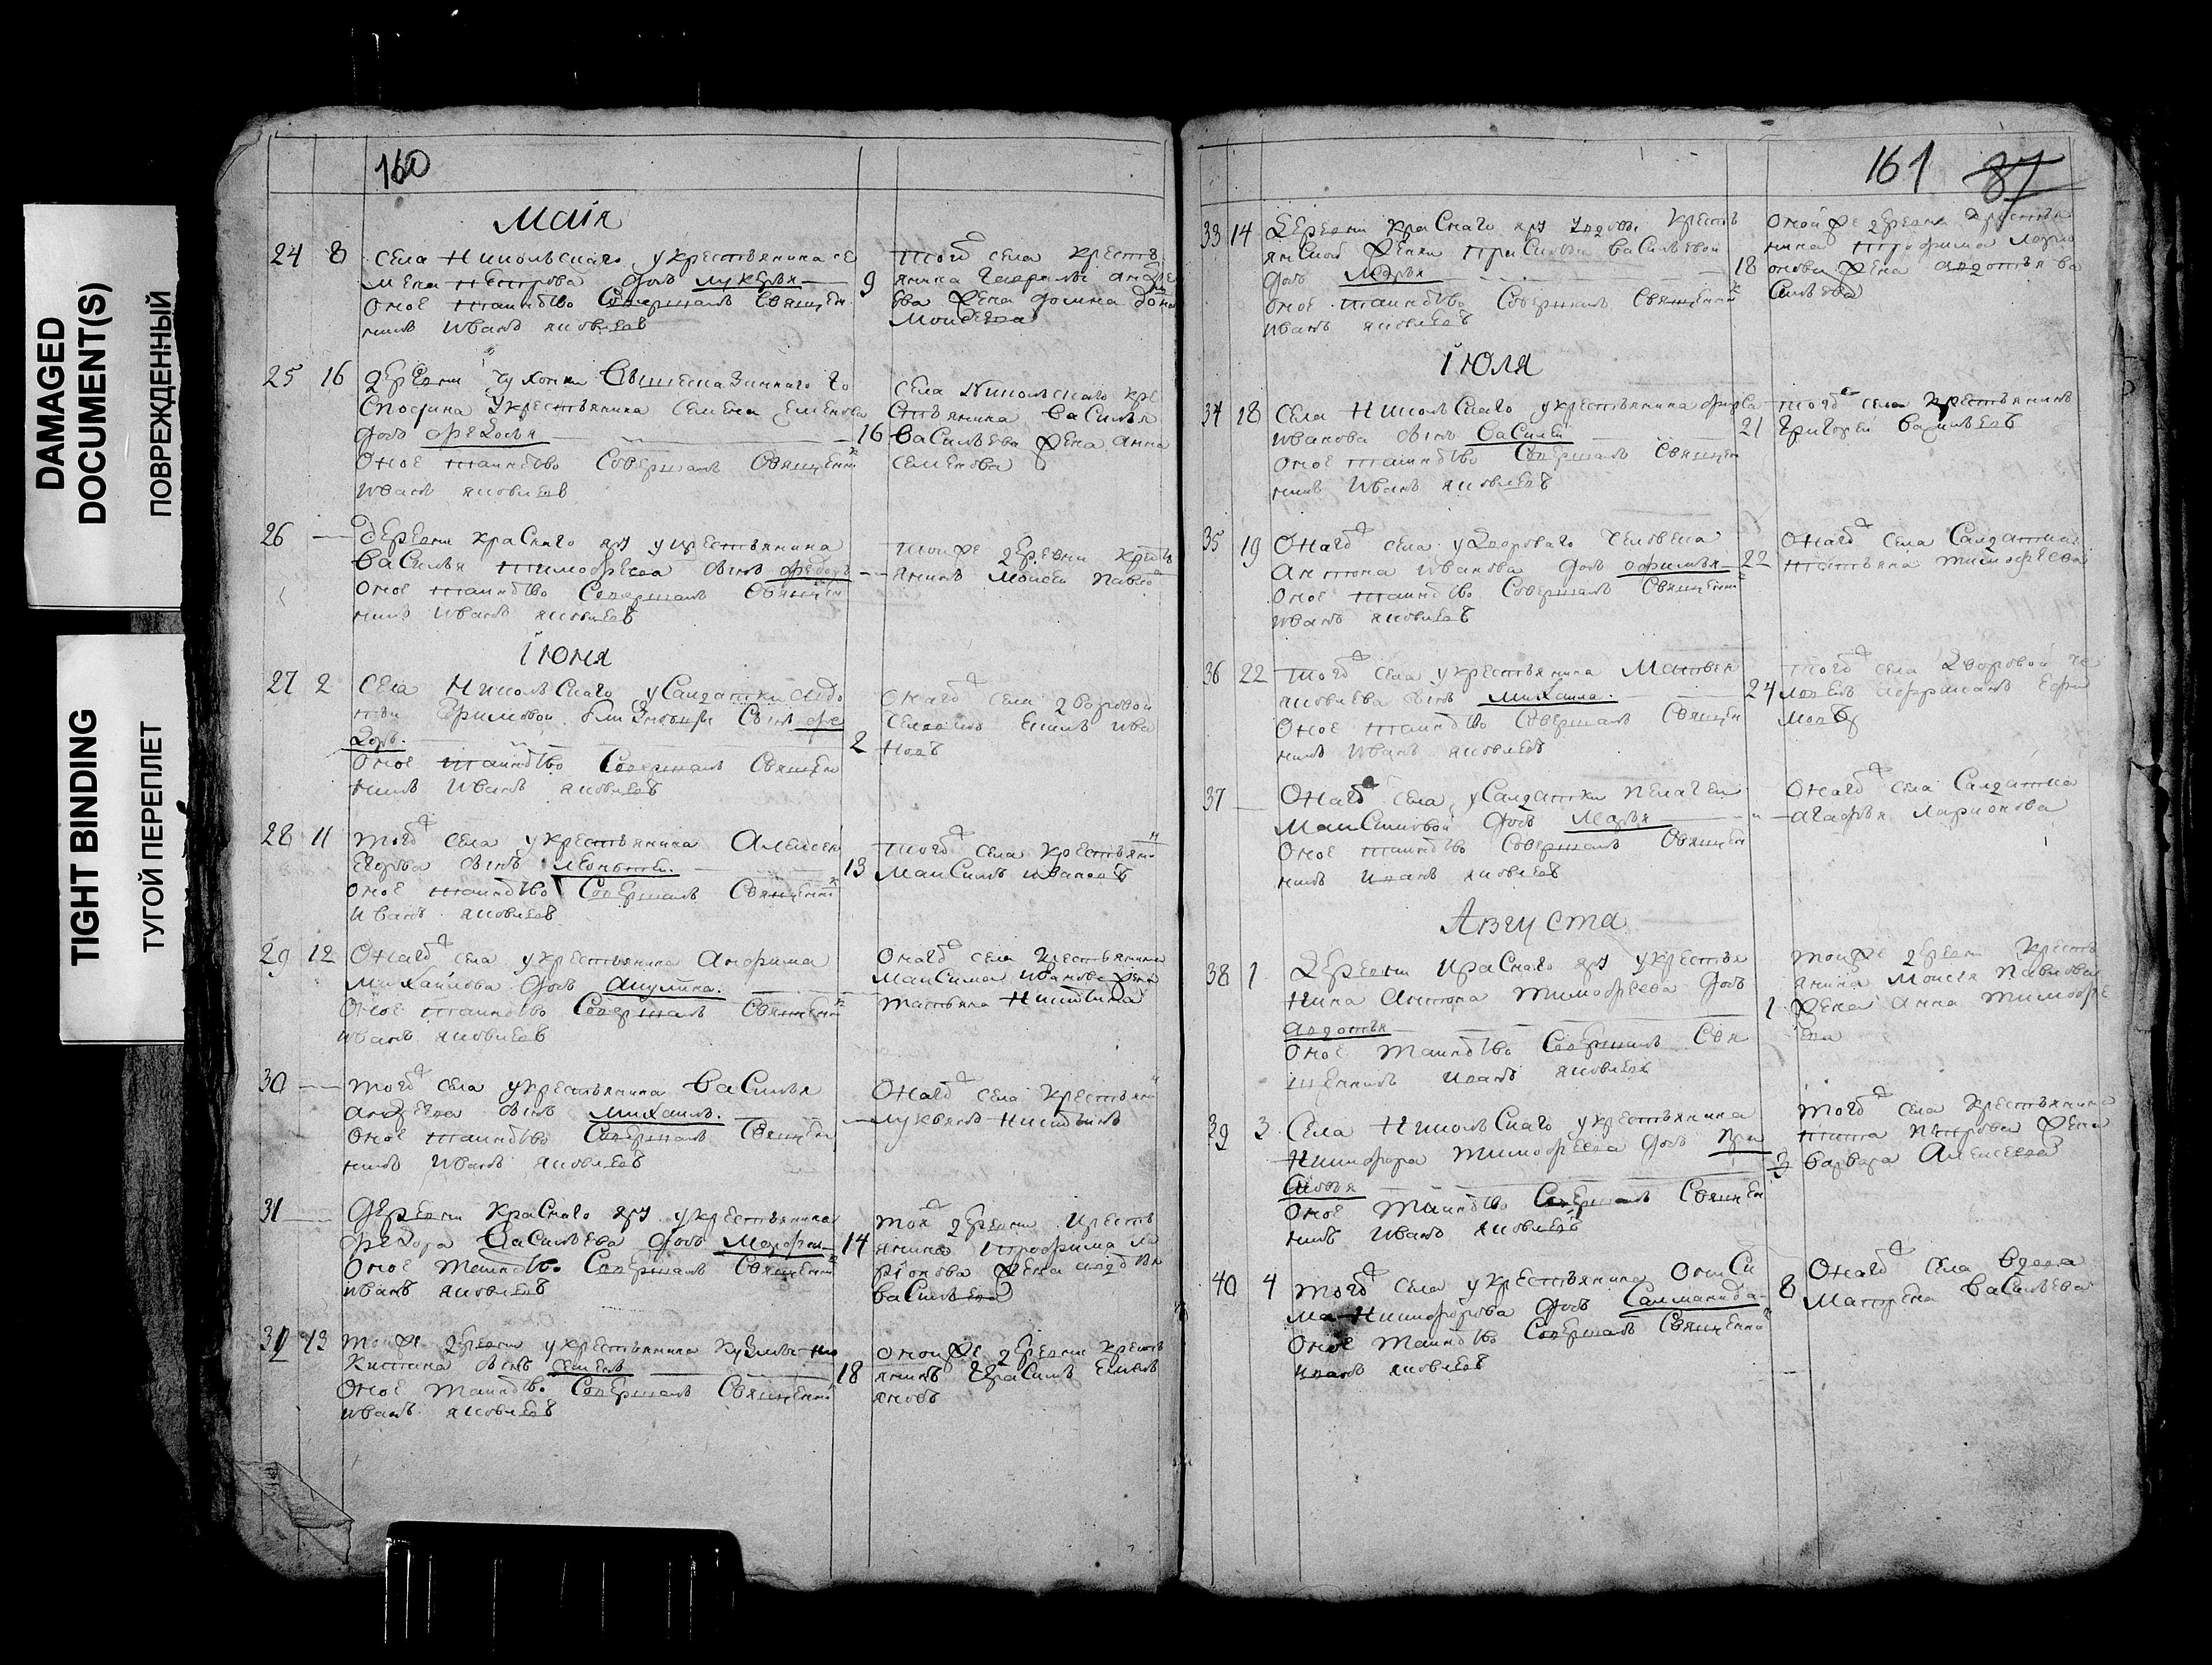 DAMAGED
DOCUMENT(S)
ПОВРЕЖДЕННЫЙ
TIGHT BINDING
ТУГОЙ ПЕРЕПЛЕТ
160
Маія
24 8 села Никольскаго у крестьянина се
мена Петрова дочь лукерья
Оное таинство Совершалъ Священ
никъ Иванъ яковлевъ
того села крестъ
9
жена
25 16 деревни
Семена
дочь федосья
Оное таинство Совершалъ Священни
Иванъ яковлевъ
села Никольскаго кре
стьянина Василья
16 Васильева жена анна
семенова
26 — деревни краснаго яру у крестьянина
Василья тимофеева сынъ федоръ
Оное таинство Совершалъ Священ
никъ Иванъ яковлевъ
тойже деревни крестъ
янинъ Моисеи павло
Іюня
27 2 Села Никольскаго у Салдатки авдо
тьи Ефимовой сынъ фе
доръ
Оное таинство Совершалъ Священ
никъ Иванъ яковлевъ
онаго села дворовой
ива
2 новъ
28 11 того села у крестьянина Алексея
Егорова сынъ
Оное таинство Совершалъ Священни
Иванъ яковлевъ
того села крестьяни
13 Максимъ ивановъ
29 12 Онаго села у крестьянина
Михайлова дочь акулина
Оное таинство Совершалъ Священни
Иванъ яковлевъ
Онаго села крестьянина
Максима Иванова жена
татьяна Никитина
30 — того села у крестьянина Василья
андреева сынъ михаилъ
Оное таинство Совершалъ Священ
никъ Иванъ яковлевъ
Онаго села крестьяни
лукьянъ никитинъ
31 — Деревни краснаго яру у крестьянина
федора Васильева дочь
Оное таинство Совершалъ Священни
Иванъ яковлевъ
той деревни крестъ
14 янина трофима ла
ріонова жена авдотья
васильева
32 13 тойже деревни у крестьянина кузмы ни
китина сынъ семенъ
Оное таинство Совершалъ Священни
Иванъ яковлевъ
онойже деревни крестъ
18 янинъ Герасимъ
161 87
33 14 Деревни краснаго яру у вдовы крестъ
янской жены прасковьи васильевой
дочь марья
Оное таинство Совершалъ Священни
Иванъ яковлевъ
онойже деревни крестья
нина трофима ларі
18 онова жена авдотья ва
сильева
Іюля
34 18 Села Никольскаго у крестьянина
иванова сынъ василеи
Оное таинство Совершалъ Священ
никъ Иванъ яковлевъ
того села крестьянинъ
21 григореи васильевъ
35 19 Онаго села у дворового человека
антона иванова дочь
Оное таинство Совершалъ Священни
Иванъ яковлевъ
Онаго села Салдатка
22 татьяна тимофеева
36 22 того села у крестьянина Матвея
яковлева сынъ михаила
Оное таинство Совершалъ Священ
никъ Иванъ яковлевъ
того села дворовой че
24 ловекъ ефи
мовъ
37 — Онаго села у Салдатки пелагеи
Максимовой дочь марья
Оное таинство Совершалъ Священ
никъ Иванъ яковлевъ
Онаго села Салдатка
агафья ларионова
Августа
38 1 Деревни краснаго яру у крестья
нина Антона тимофеева дочь
авдотья
Оное таинство Совершалъ Свя
щенникъ Иванъ яковлевъ
тойже деревни крестъ
янина Моисея павлова
1 жена анна тимофе
ева
39 3 Села Никольскаго у крестьянина
Никифора тимофеева дочь пра
сковья
Оное таинство Совершалъ Священ
никъ Иванъ яковлевъ
того села крестьянина
никита петрова жена
3 варвара Алексеева
40 4 того села у крестьянина Ониси
ма Никифорова дочь Саламанида
Оное таинство Совершалъ Священни
Иванъ яковлевъ
Онаго села вдова
8 матрена васильева